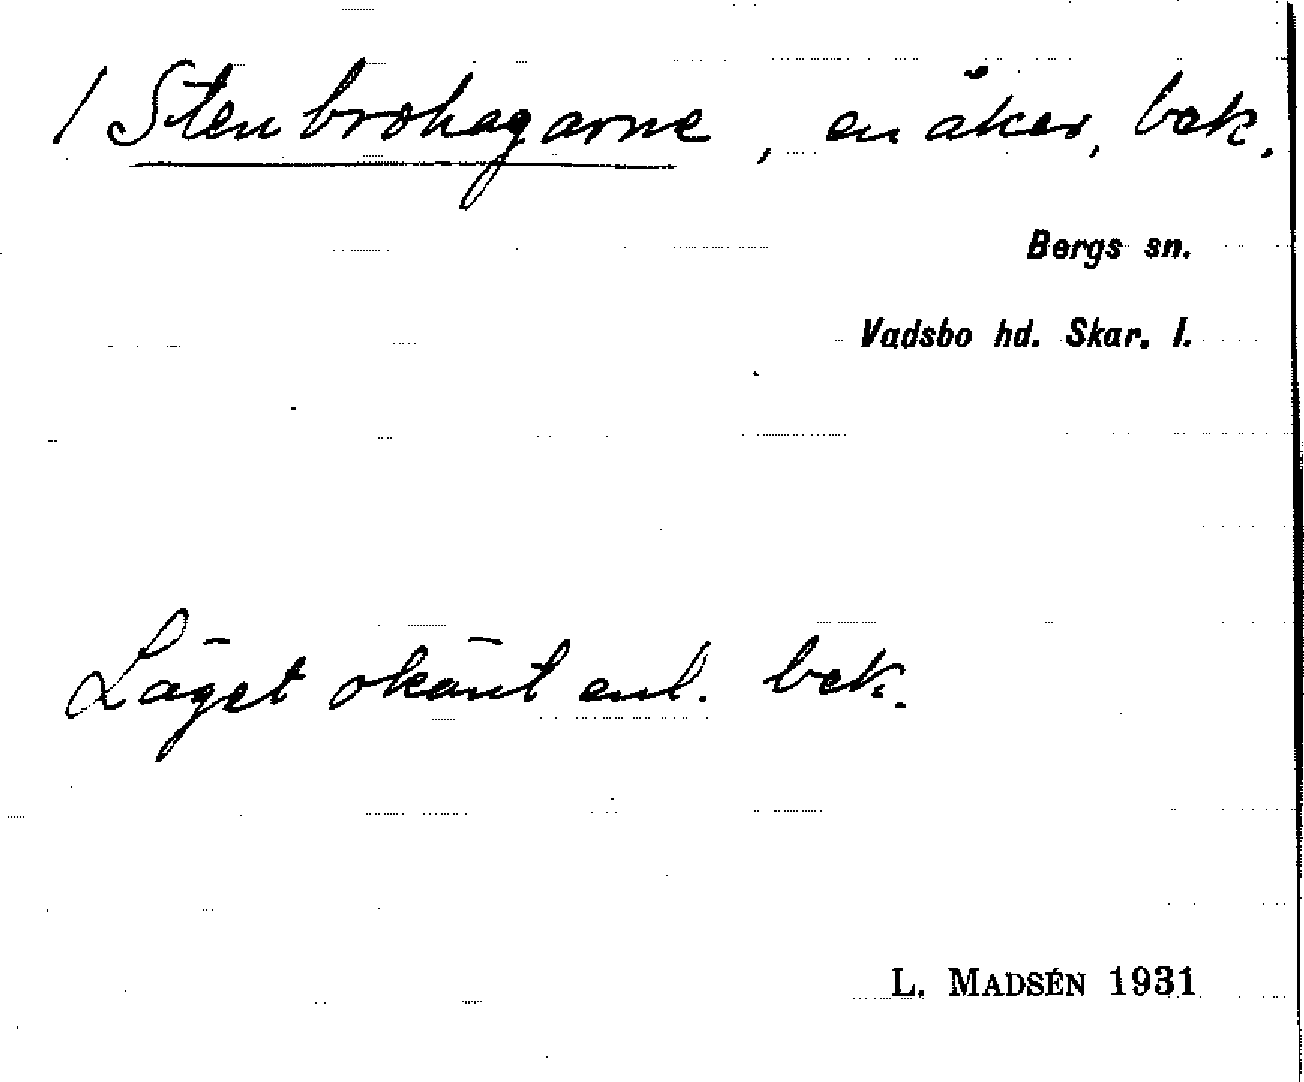 / Stenbrohagarne, en åker, bek.
Bergs sn.
Vadsbo hd. Skar. l.
Läget okänt enl. bek.
L. MADSÉN 1931